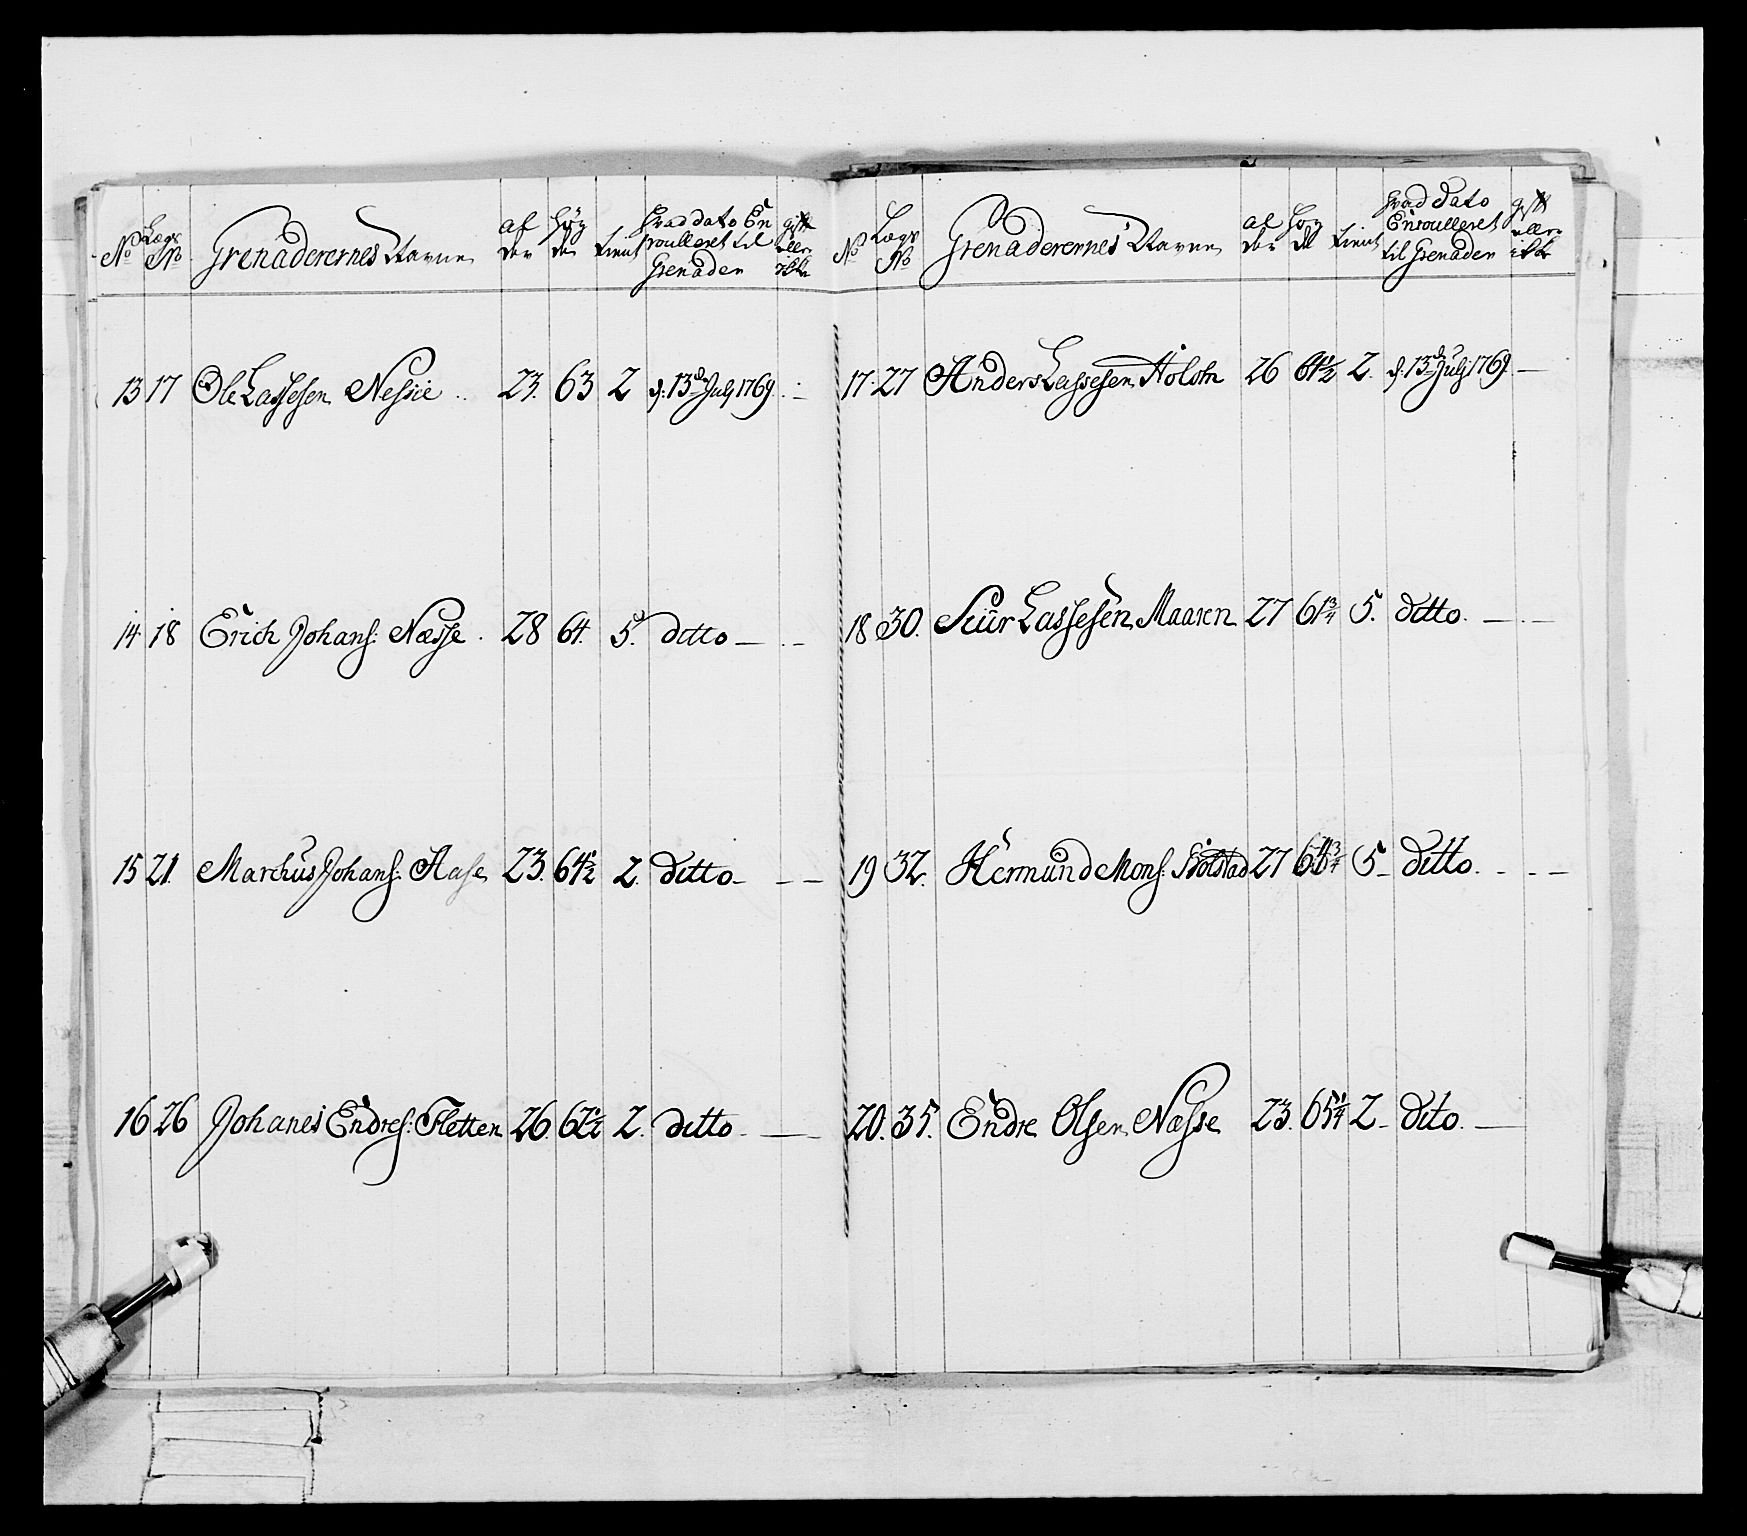 No Lægs No Grenaderernes Navne Al der Høy de tient Hvad dato En roulleret til Grenader gift eller ikke
13 17 Ole Lassesen Nessie 23. 63 2 d: 13de July 1769.
14 18 Erich Johans: Næsse. 28 64. 5. ditto
15 21. Marchus Johans: Aase 23. 64½ 2. ditto
16 26 Johanes Endres: Fletten 26. 62½ 2. ditto
No Lægs No Grenaderernes Navne al der høy de tient hvad Dato Enroulleret til Grenader gift eller ikke
17. 27 Anders Lassesen Holstn 26 61½ 2. d. 13de July 1769.
18 30. Siur Lassesen Maaren 27 61¾ 5. ditto.
19 32. Hermund Mons: 27 5 ditto.
20. 35. Endre Olsen Næsse 23. 65¼ 2 dito.